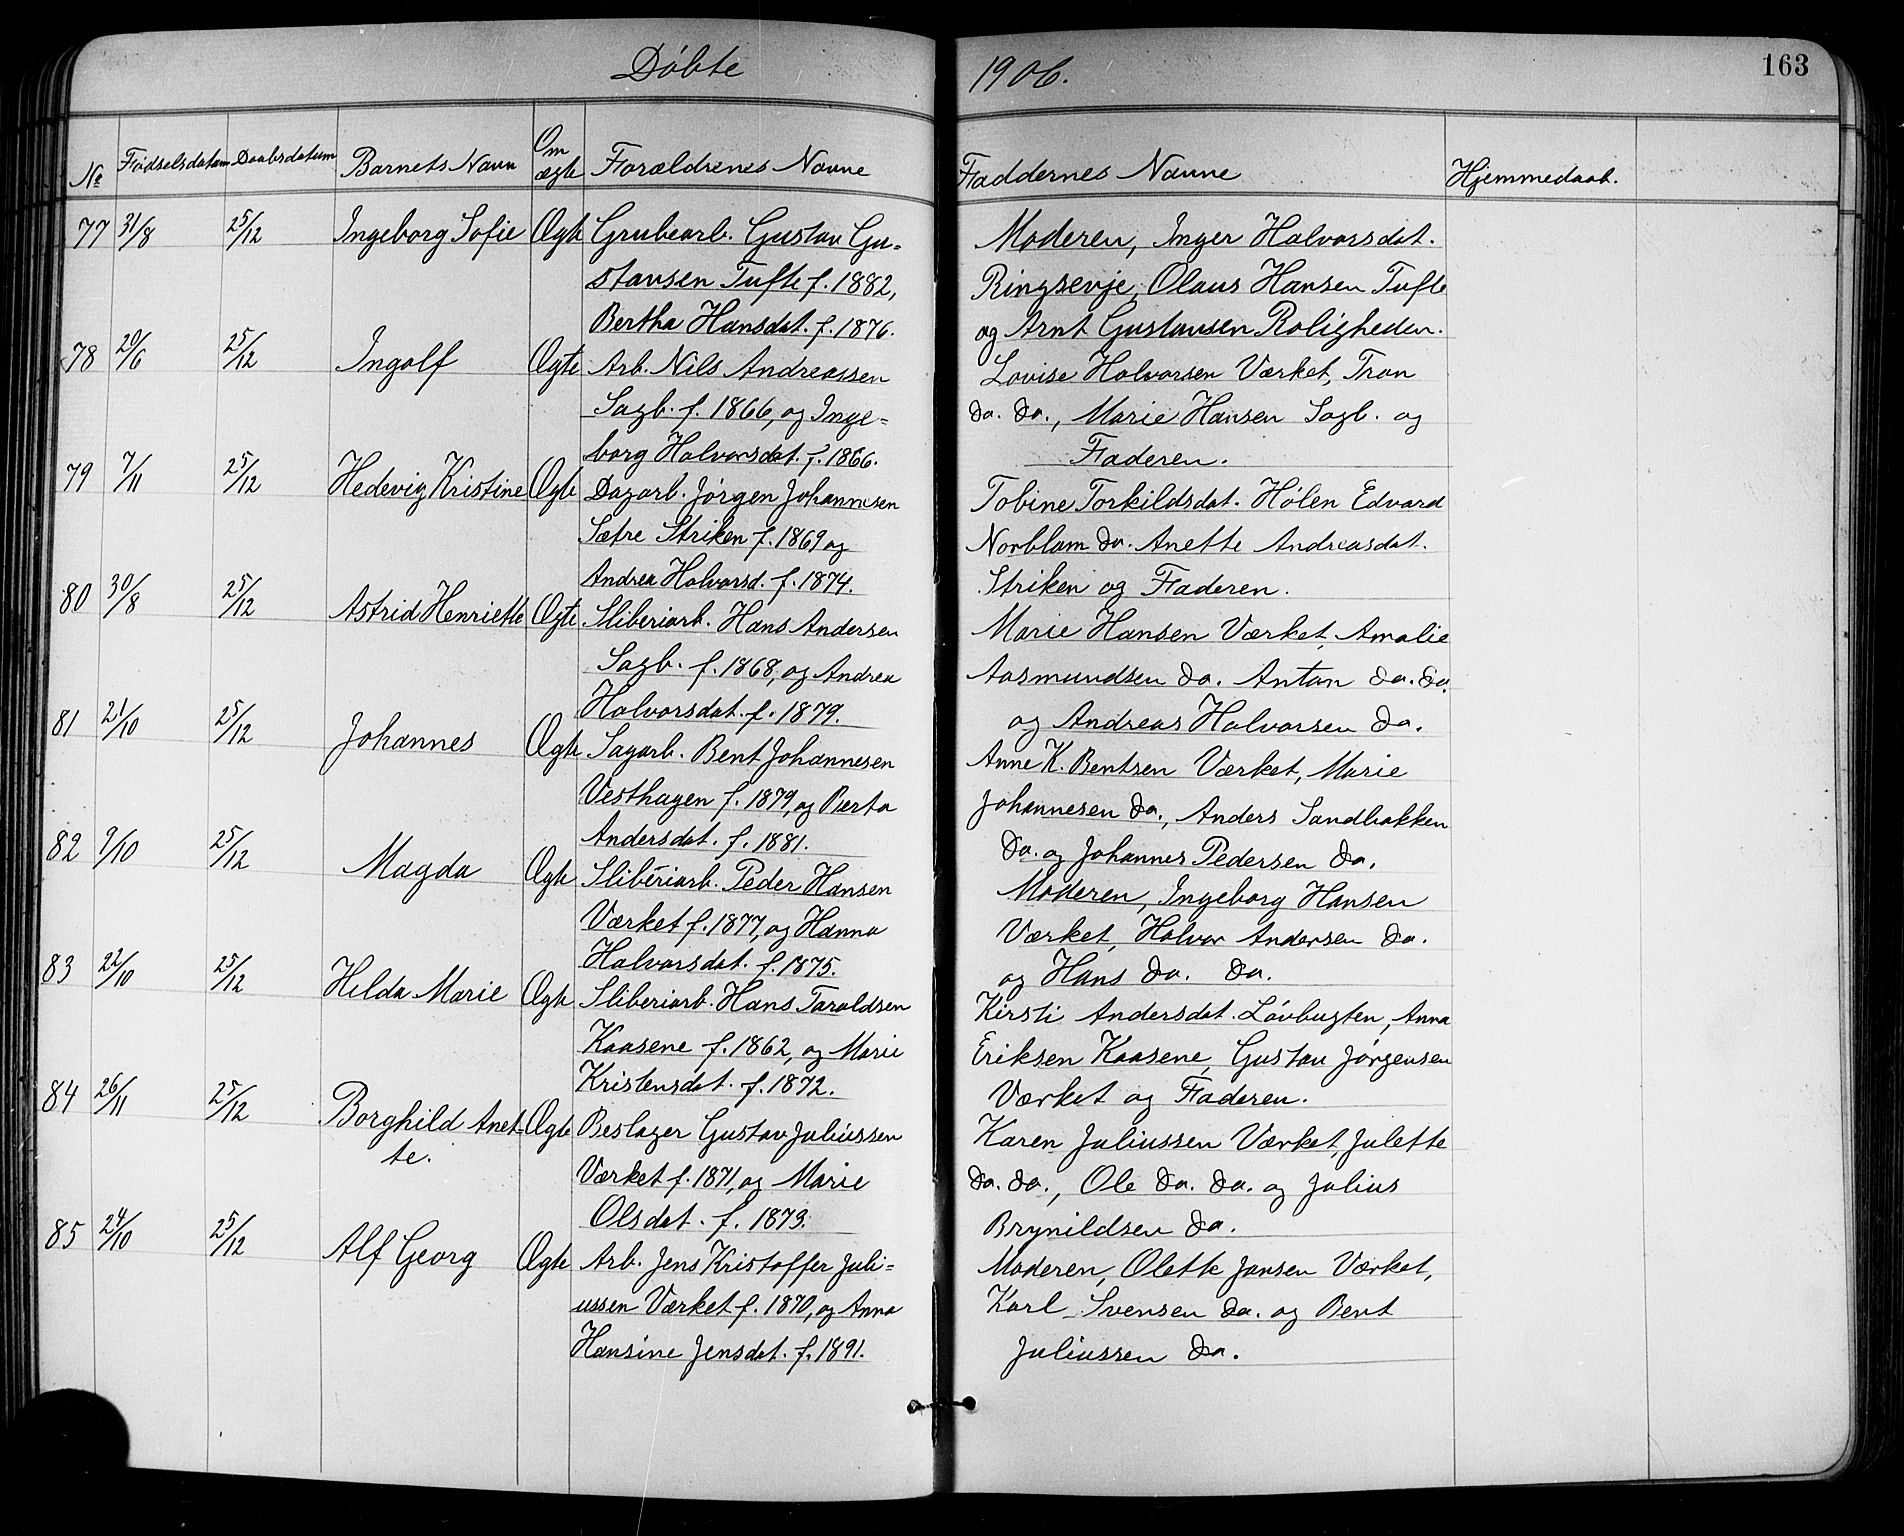 Döbte 1906. 163
No Födselsdatum Daabsdatum Barnets Navn Om ægte Forældrenes Navne Faddernes Navne Hjemmedaab.
77 31/8 25/12 Ingeborg Sofie Ægte Grubearb. Gustav Gu=
stavsen Tufte f. 1882,
Bertha Hansdat. f. 1876.
Moderen, Inger Halvorsdat.
Ringsevje, Olaus Hansen Tufte
og Arnt Gustavsen Roligheden.
78 20/6 25/12 Ingolf Ægte Arb. Nils Andreassen
Sagb. f. 1866, og Inge=
borg Halvorsdat. f. 1866.
Lovise Halvorsen Værket, Tran
do. do., Marie Hansen Sagb. og
Faderen.
79 7/11 25/12 Hedevig Kristine Ægte Dagarb. Jörgen Johannesen
Sætre Striken f. 1869 og
Andrea Halvorsd. f. 1874.
Tobine Torkildsdat. Hölen Edvard
Norblom do. Anette Andreasdat.
Striken og Faderen.
80 30/8 25/12 Astrid Henriette Ægte Sliberiarb. Hans Andersen
Sagb. f. 1868, og Andrea
Halvorsdat. f. 1879.
Marie Hansen Værket, Amalie
Aasmundsen do. Anton do. do.
og Andreas Halvorsen do.
81 21/10 25/12 Johannes Ægte Sagarb. Bent Johannesen
Vesthagen f. 1879, og Berta
Andersdat. f. 1881.
Anne K. Bentsen Værket, Marie
Johannesen do., Anders Sandbakken
do. og Johannes Pedersen do.
82 9/10 25/12 Magda Ægte Sliberiarb. Peder Hansen
Værket f. 1877, og Hanna
Halvorsdat. f. 1875.
Moderen, Ingeborg Hansen
Værket, Halvor Andersen do.
og Hans do. do.
83 22/10 25/12 Hilda Marie Ægte Sliberiarb. Hans Taraldsen
Kaasene f. 1862, og Marie
Kristensdat. f. 1872.
Kirsti Andersdat. Lövbugten, Anna
Eriksen Kaasene, Gustav Jörgensen
Værket og Faderen.
84 26/11 25/12 Borghild Anet-
te. Ægte Beslager Gustav Juliussen
Værket f. 1871, og Marie
Olsdat. f. 1873.
Karen Juliussen Værket, Julette
do. do., Ole do. do. og Julius
Brynildsen do.
85 24/10 25/12 Alf Georg Ægte Arb. Jens Kristoffer Juli=
ussen Værket f. 1870, og Anna
Hansine Jensdat. f. 1891.
Moderen, Olette Jansen Værket,
Karl Svensen do. og Bent
Juliussen do.